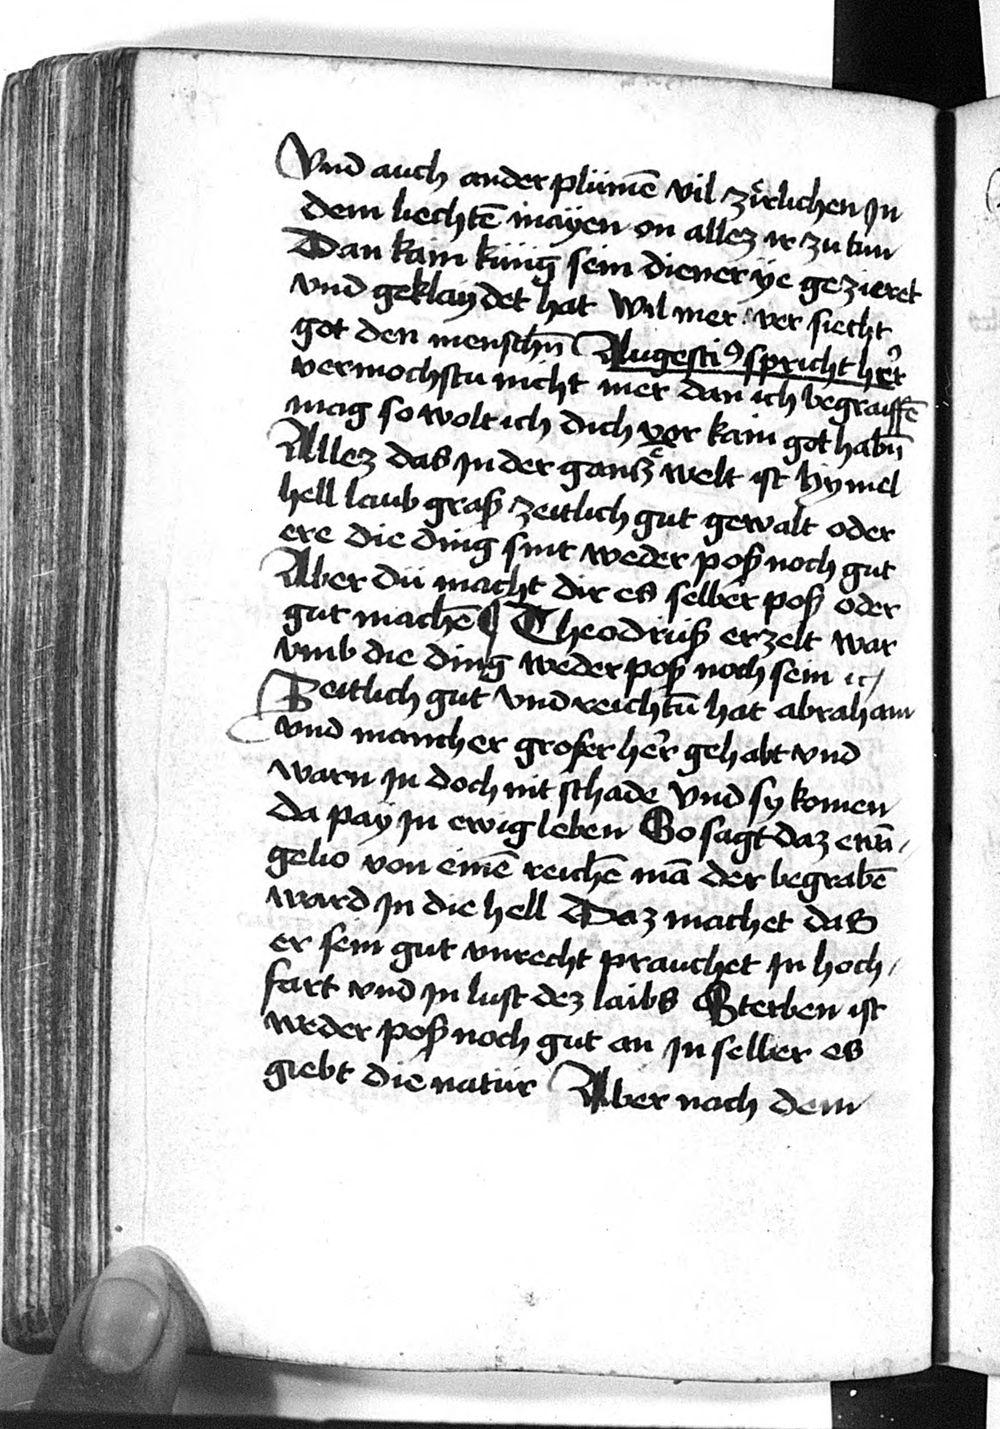 Vnd auch ander plůmē vil zirlichen Jn
dem liechtē mayen on allez ir zu tun
Dan kain küng sein diener ye gezieret
vnd geklaydet hat Wil mer ver siecht
got den menschn̄ Augesti9 spricht her̄
vermochstu nicht mer dan ich begraiffē
mag so wolt ich dich ver kain got habn̄
Allez das Jn der gantz welt ist hymel
hell laub graß zeitlich gut gewalt oder
ere die ding sint weder poß noch gut
Aber dü macht dir es selber poß oder
gut machē ¶ Theodrüß erzelt war
vmb die ding weder poß noch sein ⁊c
Zeitlich gut vnd reichtū hat abraham
vnd mancher groser her̄ gehabt vnd
warn Jn doch nit schade Vnd sy komen
da pay Jn ewig leben So sagt daz ewā
gelio von einē reichē mā der begrabē
ward Jn die hell Daz machet das
er sein gut vnrecht prauchet Jn hoch
fart vnd Jn lust dez laibs Sterben ist
weder poß noch gut an Jn selber es
giebt die natür Aber nach dem